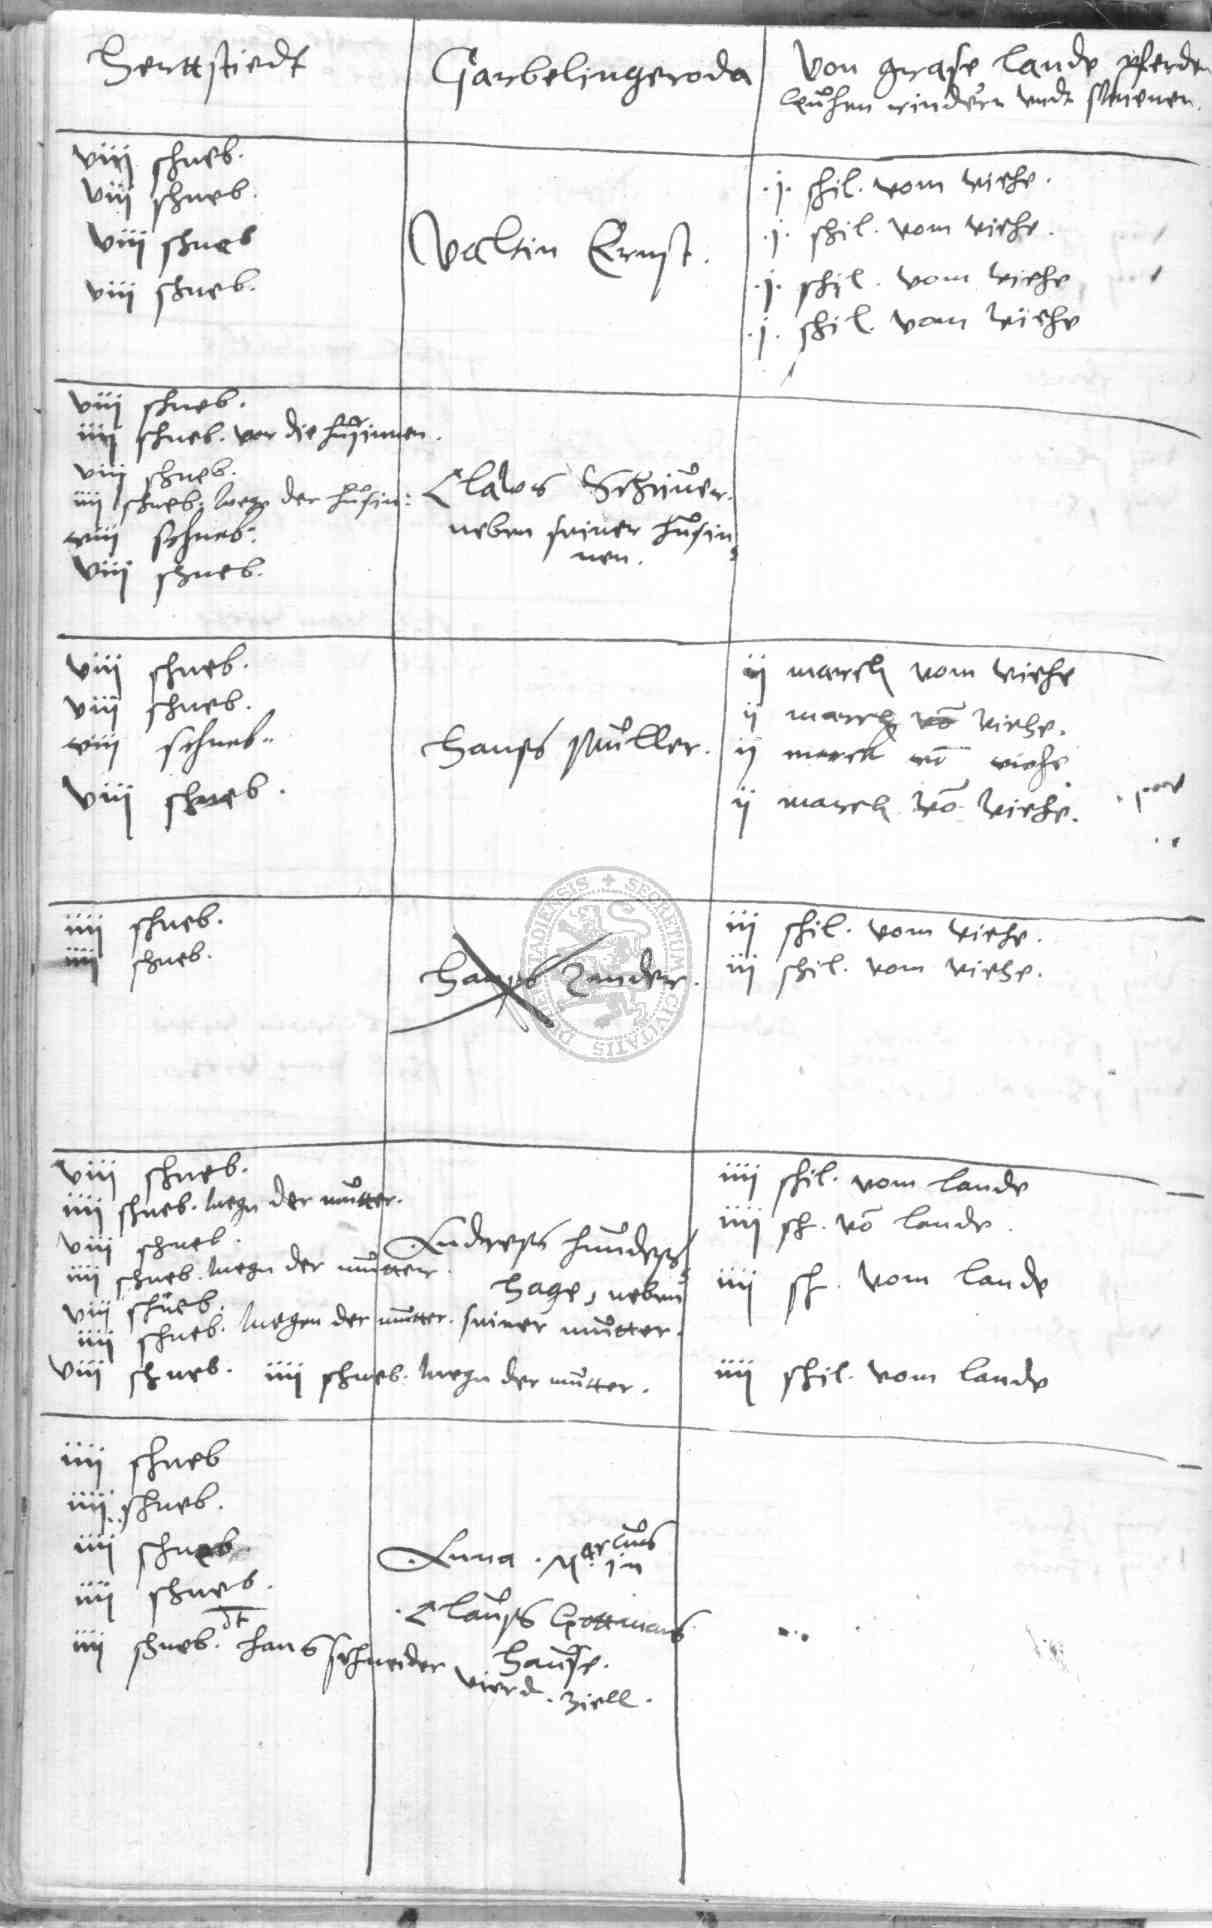 Herttstiedt
Garbelingeroda
Von grase lande pferden
kuͦhen rindern vndt
viij schneb.
viij schneb.
viij schneb
viij schneb.
Valtin Ernst.
.j. schil. vom viehe.
.j. schil. vom viehe.
.j. schil. vom viehe
.j. schil. vom viehe
viij schneb.
iiij schneb. vor die huͦsinnen.
viij schneb.
iiij schneb. wege der huͦsin:
viij schneb.
viij schneb.
Claws Schriuer.
neben seiner huͦsin
nen.
viij schneb.
viij schneb.
viij schneb.
viij schneb.
Hanß Muͦller.
ij marck vom viehe
ij marck vō viehe.
ij marck vō viehe
ij marck vō viehe.
iiij schneb.
iiij schneb.
Hanß Zander.
iij schil. vom viehe.
iij schil. vom viehe.
SECRETUM CIVITATIS DUDERSTADIENSIS
viij schneb.
iiij schneb. wegn der muͦtter.
viij schneb.
iiij schneb. wegn der muͦtter.
viij schneb.
iiij schneb. wegen der muͦtter.
viij schneb. iiij schneb. wegn der muͦtter.
Andreß Hundeß
hage, neben
seiner muͦtter.
iiij schil. vom lande
iiij sch. vō lande.
iiij sch. vom lande
iiij schil. vom lande
iiij schneb
iiij schneb.
iiij schneb
iiij schneb.
iiij schneb. dt Hans Schneider
Anna Marcus
in
Clauß
Hause.
vierd. ziell.